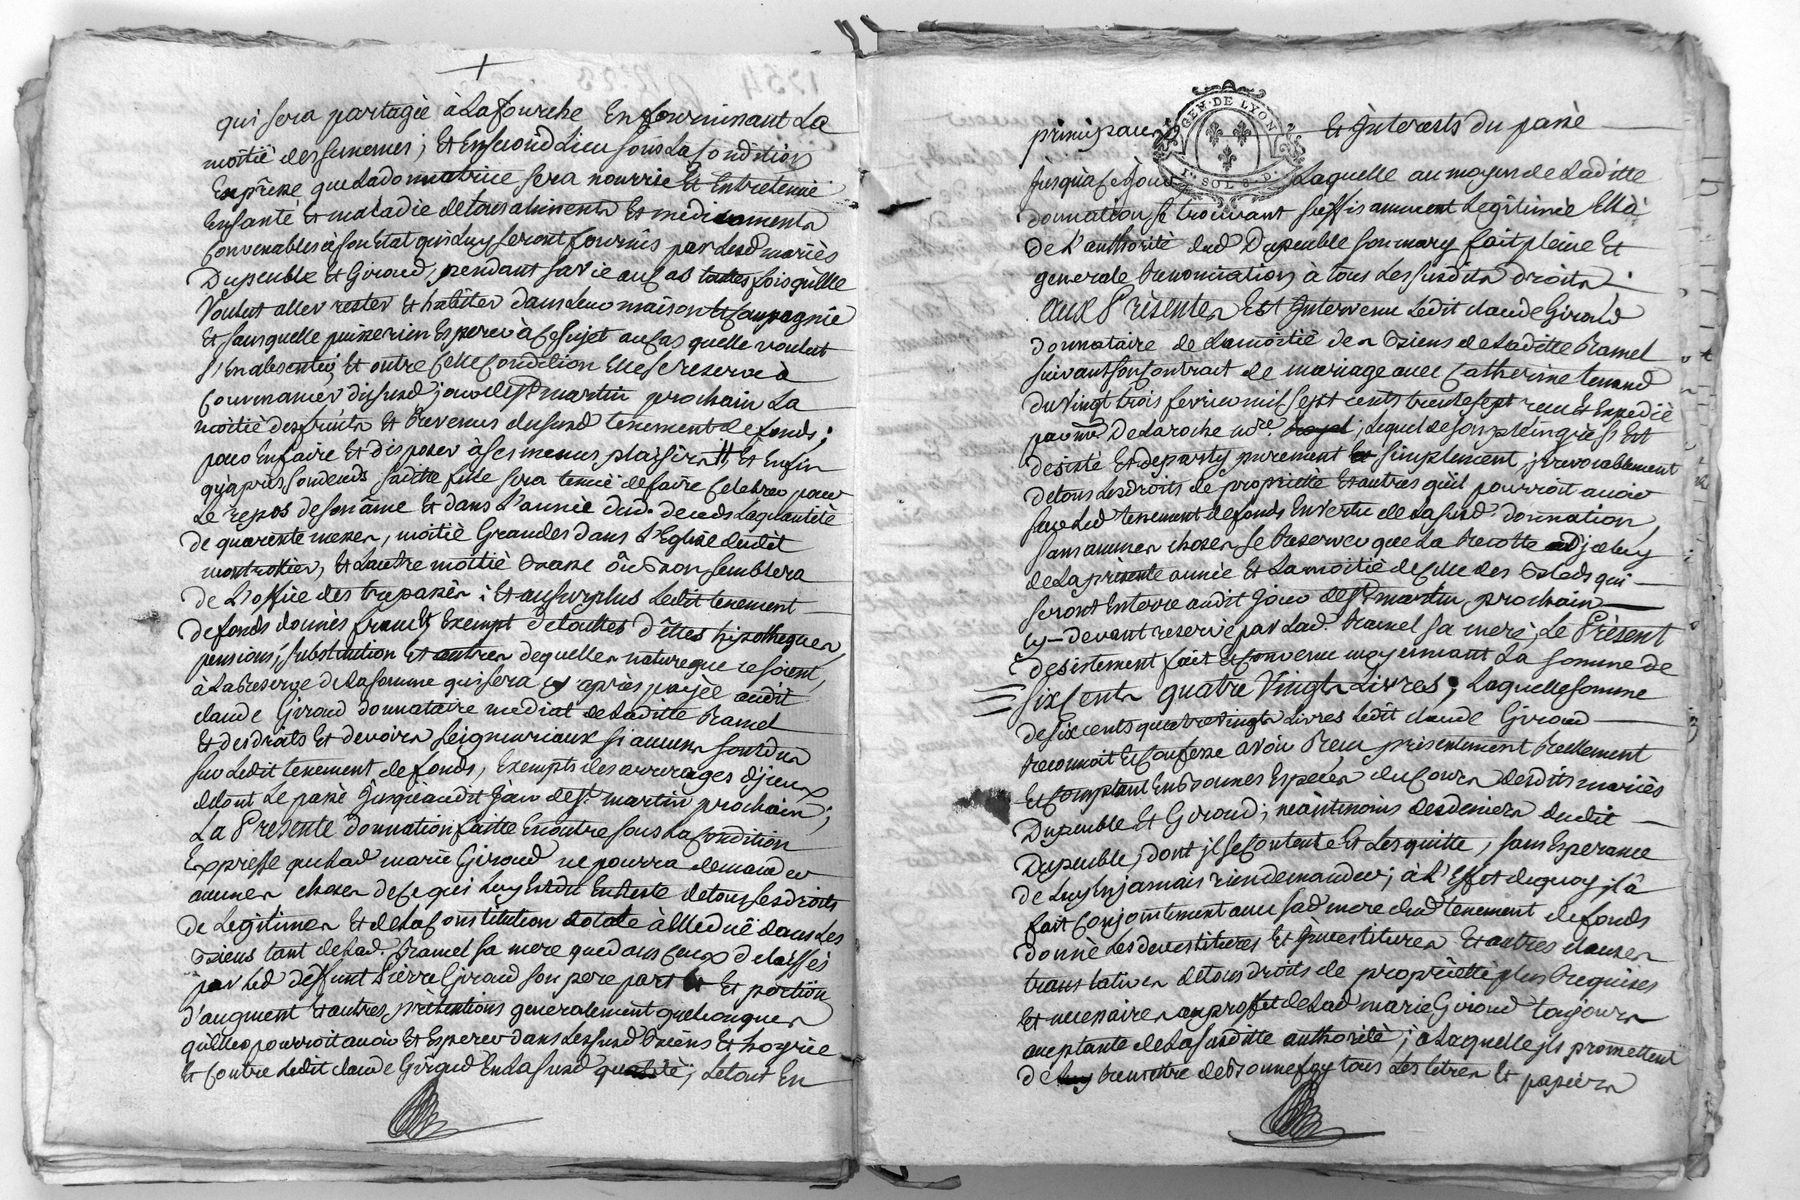 qui sera partagée à La fourche En fournissant La
moitié des semences ; Et En second Lieu sous La Condition
Expresse que La donnatrice sera nourrie Et Entretenue
En santé Et maladie de tous aliments Et medicaments
Convenables à son Etat qui Luy seront fournis par Lesd mariés
Dupeuble Et Giroud, pendant sa vie au cas toutes fois qu'elle
voulut aller rester Et habiter dans Leur maison Et Compagnie
Et sans quelle puisse rien Esperer à Ce Sujet au cas quelle voulut
s'En absenter, Et outre Cette Condition Elle se reserve a
Commancer du susd jour de st martin prochain La
moitié des fruits Et Revenus du susd tenement de fonds ;
pour En faire Et disposer à ses menus plaisirs Et Enfin
qu'après son deceds sadite fille sera tenuë de faire Celebrer pour
Le repos de son âme Et dans L'année dud. deceds La quantité
de quarente messes, moitié Grandes dans L'Eglise dudit
montrottier, Et L'autre moitié Basse où Bon semblera
de L'office des trepassés ; Et au surplus Ledit tenement
de fonds donnés franc Et Exempt de touttes dettes hipotheques,
pensions, substitution Et autres de quelles nature que ce soient,
à La Reserve de La somme qui sera cy après payée audit
claude Giroud donnataire mediat de Laditte Ramel
Et des droits Et devoirs seigneuriaux si aucuns sont dus
sur Ledit tenement de fonds, Exempts des arrerages d'jceux
detout Le passé jusqu'audit jour de st martin prochain ;
La Presente donnation faitte En outre sous La Condition
Expresse que Lad marie Giroud ne pourra demander
aucunes choses de Ce qui Luy Est dû En Reste de tous ses droits
de Legitimes Et de La Constitution dotale à Elle duë dans Les
Biens tant de Lad. Ramel sa mere que dans Ceux delaissés
par Led deffunt Pierre Giroud son pere part Et portion
d'augment Et autres prétentions generalement quelconques
qu'elle pourroit avoir Et Esperer dans Les susd Biens Et hoyrie
Et Contre Ledit claude Giroud En La susd qualité ; Le tout En
GEN. DE LYON
1. SOL 8 D.
principaux Et Interests du passé
jusqu'a Ce jour Laquelle au moyen de Laditte
donnation se trouvant suffisamment Legitimée Elle a
De L'authorité dud Dupeuble son mary fait pleine Et
generale Renonciation à tous Les susdits droits.
Aux Présentes Est Intervenu Ledit claude Giroud
donnataire de La moitié des Biens de Laditte Ramel
suivant son Contrat de mariage avec Catherine
du vingt trois fevrier mil sept cents trente sept receu Et Expedié
par me Delaroche nore. Lequel de son plein gré s'Est
desisté Et departy purement Et simplement, jrrevocablement
de tous Les droits de propriété Et autres qu'il pourroit avoir
sur Led tenement de fonds En vertu de La susd donnation,
sans aucunes choses se Reserver que La Recolte d'jceluy
de La presente année Et La moitié de Celle des Bleds qui
seront En terre audit jour de st martin prochain
cy-devant reservé par Lad. Ramel sa meré, Le Présent
desistement fait Et Convenu moyennant La somme de
six Cents quatre Vingts Livres ; Laquelle somme
de six cents quatre vingts Livres Ledit claude Giroud
Reconnoit Et Confesse avoir Receu presentement Reellement
Et Comptant En Bonnes Especes du Cours desdits mariés
Dupeuble Et Giroud ; neantmoins des deniers dudit
Dupeuble, dont jl se Contente Et Les quitte, sans Esperance
de Luy En jamais rien demander ; à L'Effet de quoy jl a
fait Conjointement avec sad mere dud tenement de fonds
donné Les devestitures Et Investitures Et autres clauses
translatives de tous droits de proprieté plus Requises
Et necessaires au proffit de Lad marie Giroud toujours
acceptante de La susditte authorité ; à Laquelle jls promettent
de Remettre de Bonne foy tous Les titres Et papiers